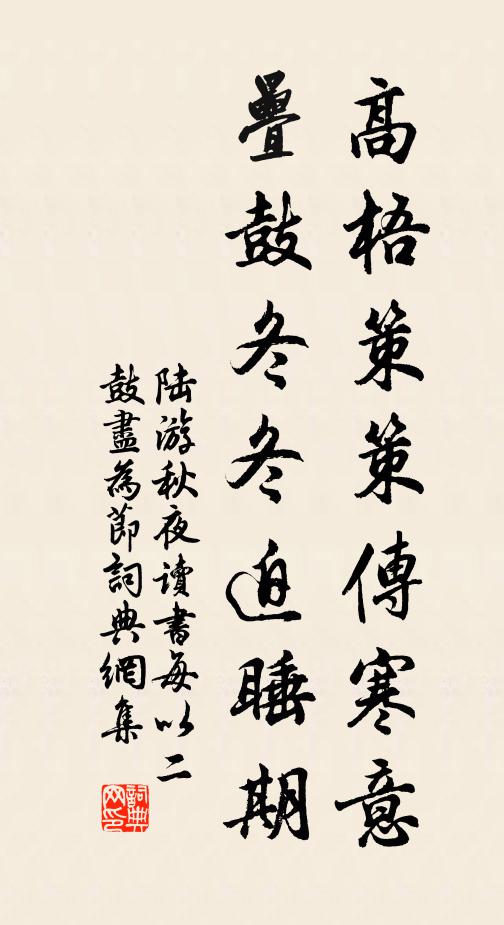 高梧策策傳寒意
疊鼓冬冬迫睡期
陆游秋夜读書每以二
鼓盡為節詞典網集
詞典
网印